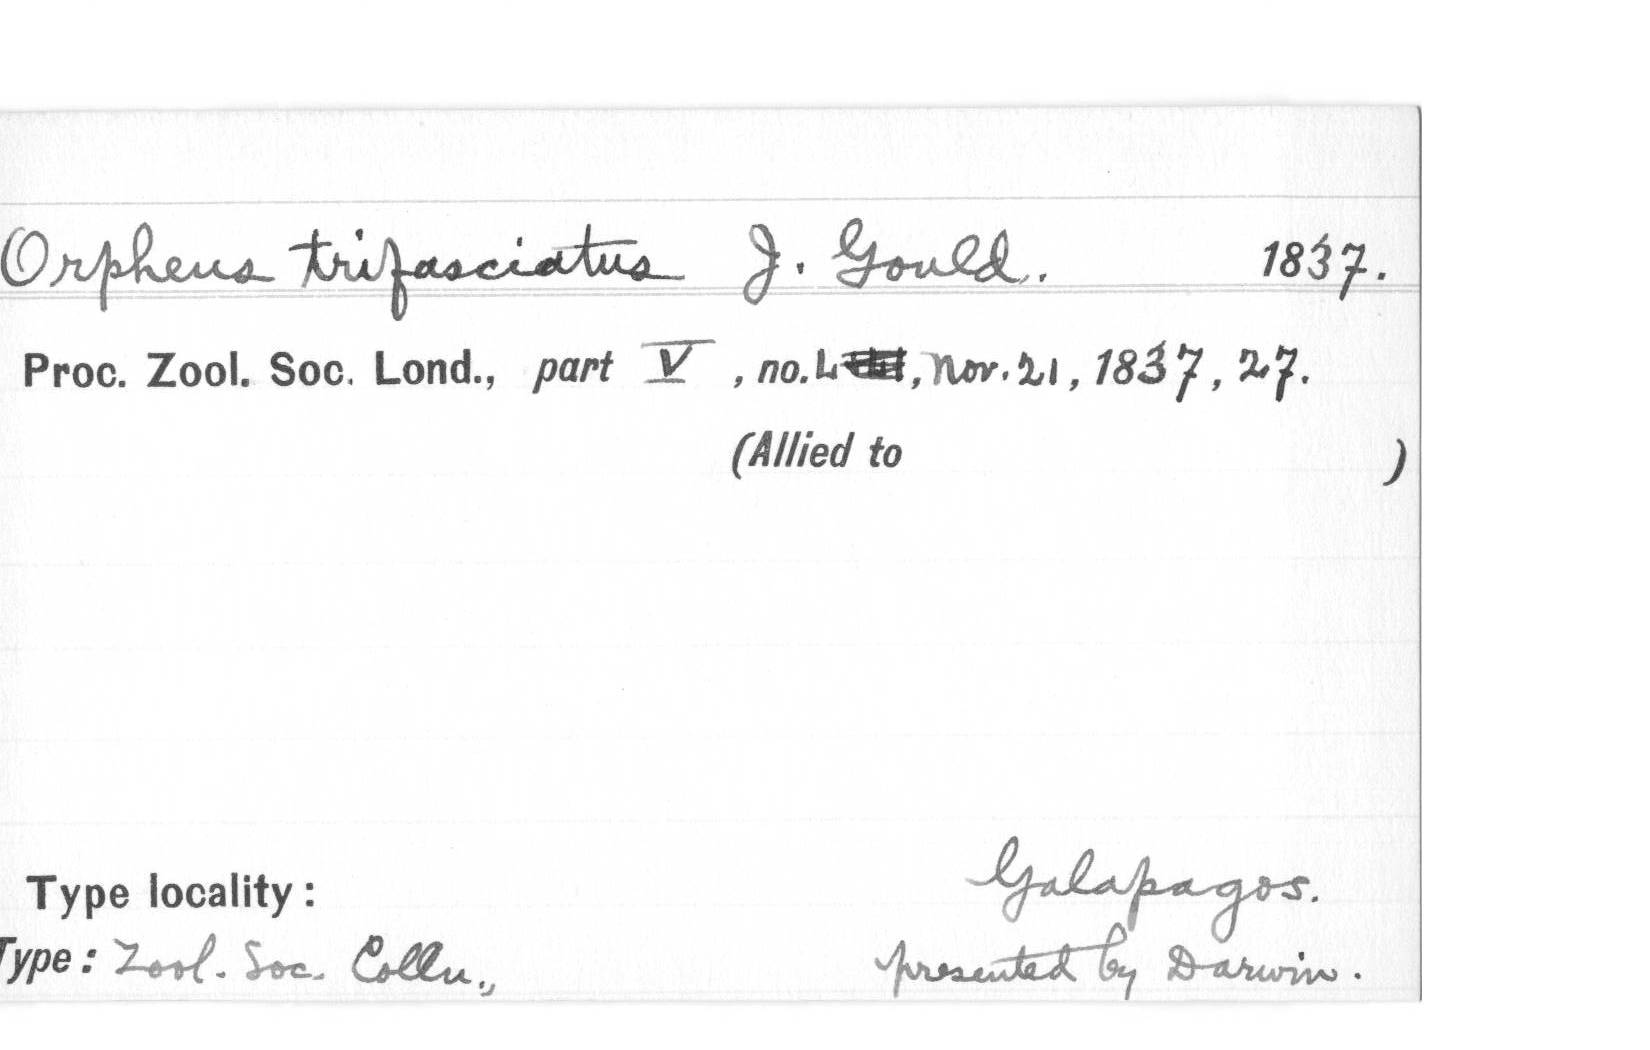 Orpheus trifasciatus J. Gould. 1837.
Proc. Zool. Soc. Lond., part V, no. L, Nov. 21, 1837, 27.
(Allied to )
Type locality: Galapagos.
Type: Zool. Soc. Colln., presented by Darwin.